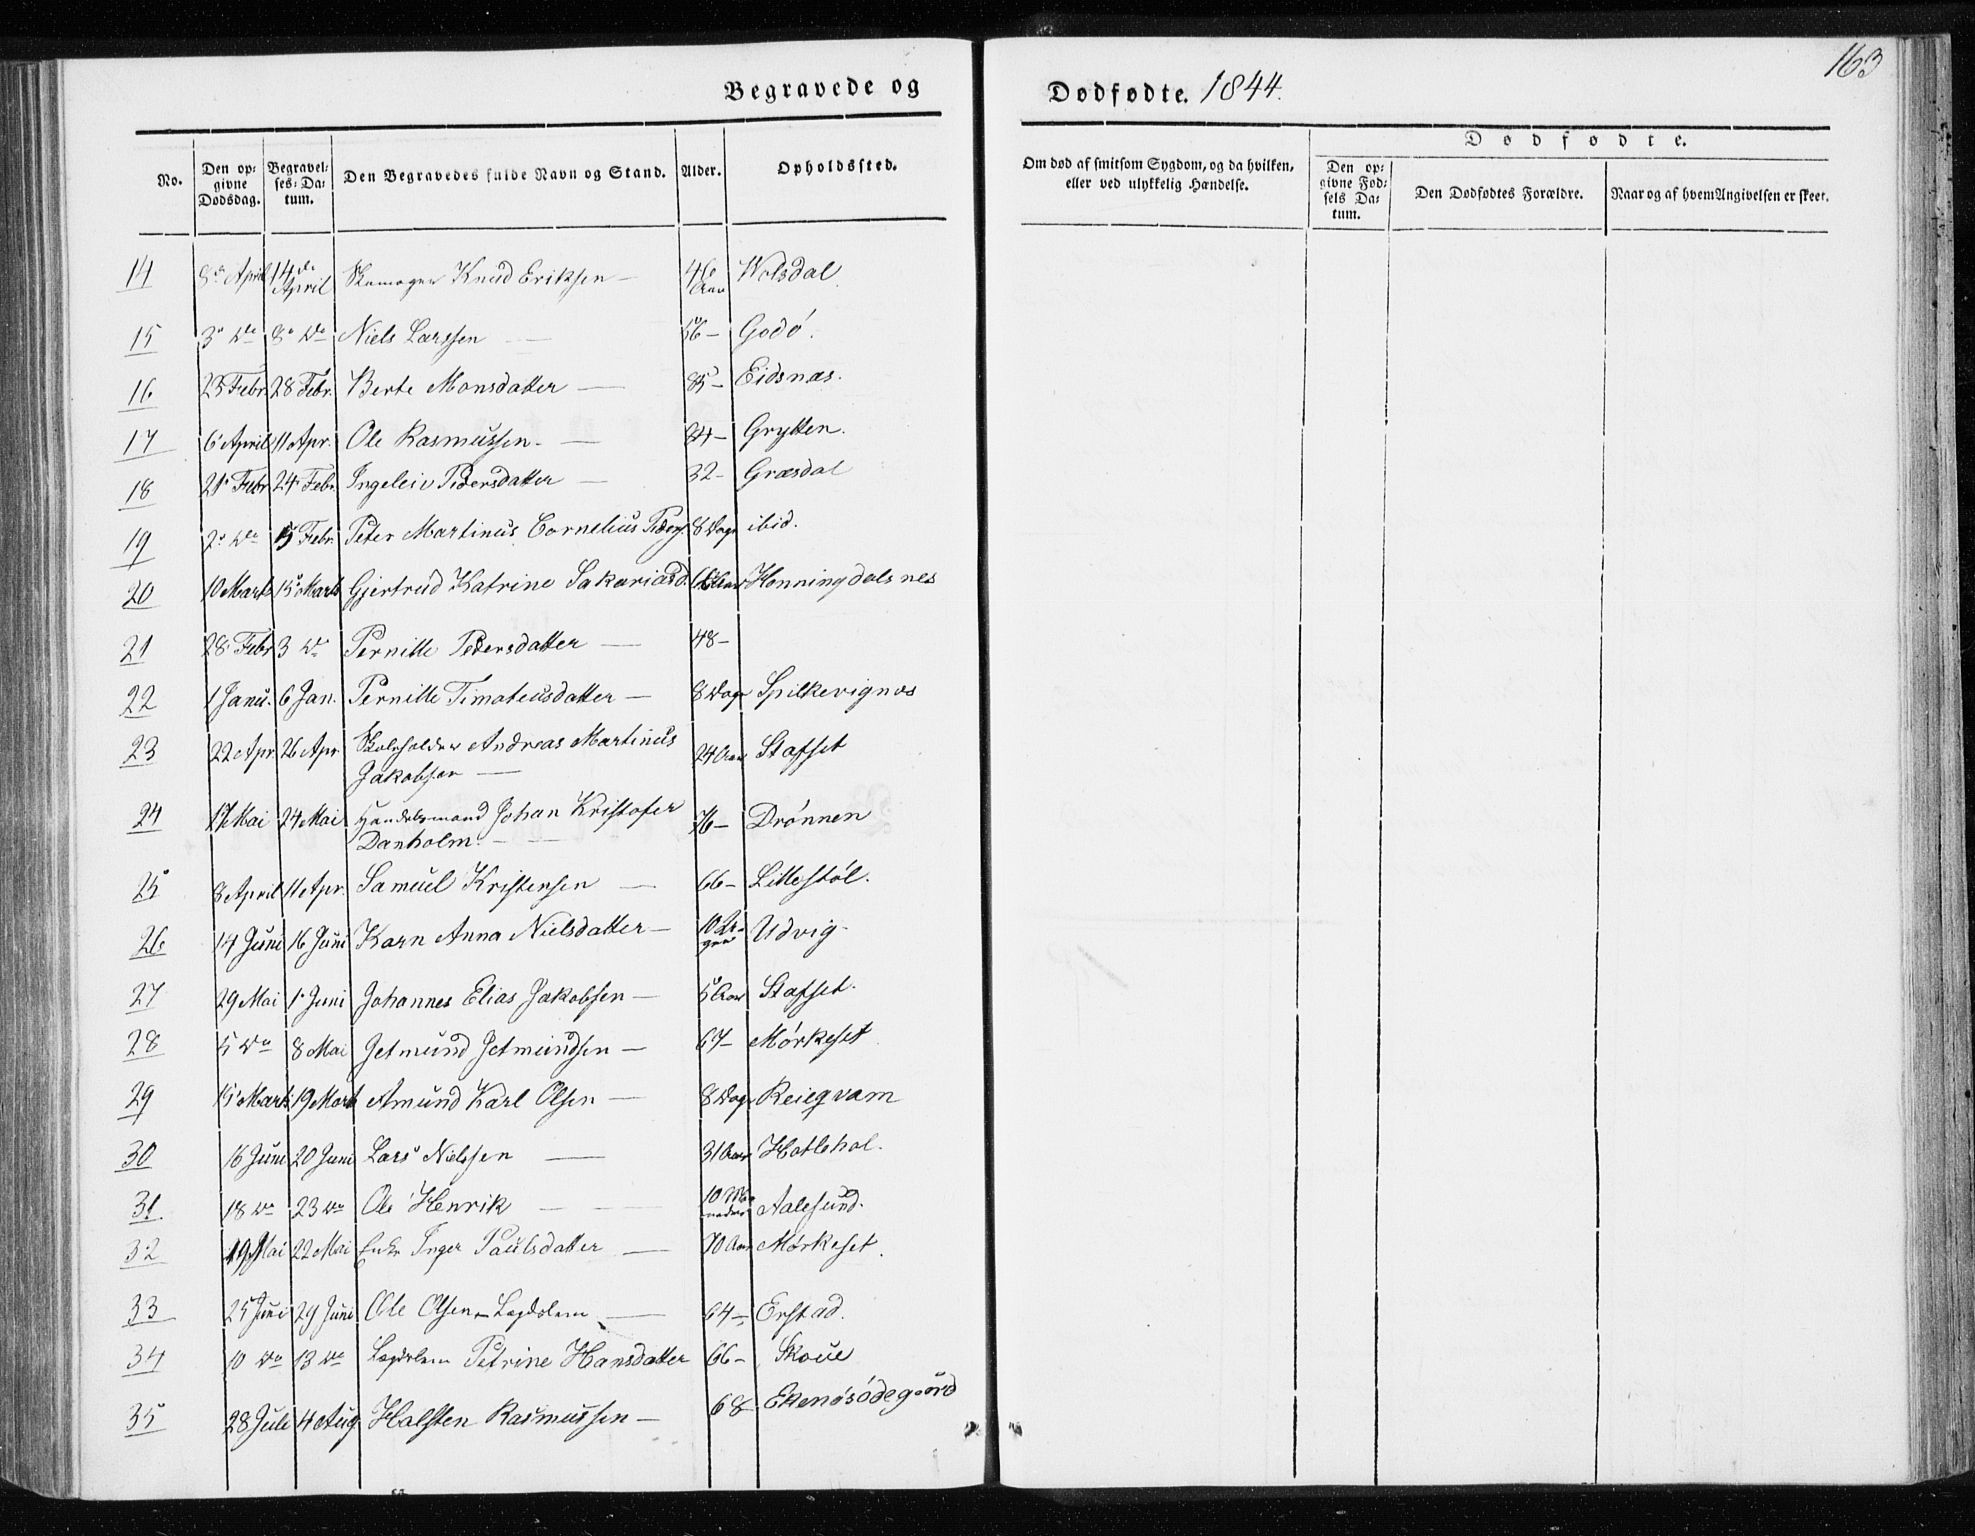 163
Begravede og Dødfødte. 1844.
No. Den opgivne Dødsdag. Begravelses-Datum. Den Begravedes fulde Navn og Stand. Alder. Opholdssted. Om død af smitsom Sygdom, og da hvilken, eller ved ulykkelig Hændelse. Dødfødte. Den opgivne Fødsels Datum. Den Dødfødtes Forældre. Naar og af hvem Angivelsen er skeet.
14 8de April 14de April Skomager Knud Eriksen — 46 Aar Wolsdal
15 3 do 8 do Niels Larssen — 56 – Godø.
16 23 Febr. 28 Febr. Berte Monsdatter — 85 – Eidsnæs.
17 6 April 11 Apr. Ole Rasmussen — 84 – Grytten.
18 21 Febr 24 Febr. Ingeleiv Pedersdatter — 32 – Græsdal
19 2 do 5 Febr. Peter Martinus Cornelius Peders. 8 Dage ibid.
20 10 Marts 15 Marts Gjertrud Katrine Sakariasd. Aar Honningdalsnes
21 28 Febr 3 do Pernille Pedersdatter — 48 –
22 1 Janu. 6 Jan. Pernille Timoteusdatter — 8 Dage Spilkevignæs
23 22 Apr. 26 Apr. Skoleholder Andreas Martinus Jakobsen — 24 Aar Stafset
24 17 Mai 24 Mai Handelsmand Johan Kristofer Danholm — 76 – Drønnen
25 8 April 11 Apr. Samuel Kristensen — 66 – Littestøl.
26 14 Juni 16 Juni Karn Anna Nielsdatter — 10 Uger Udvig
27 29 Mai 1 Juni Johannes Elias Jakobsen — 5 Aar Stafset.
28 5 do 8 Mai Jetmund Jetmundsen — 67 – Mørkeset
29 15 Marts 19 Marts Amund Karl Olsen — 8 Dage Reiegvam
30 16 Juni 20 Juni Lars Nielssen — 31 Aar Hatlehol.
31 18 do 23 do Ole Henrik — 10 Maaneder Aalesund.
32 19 Mai 22 Mai Enke Inger Paulsdatter — 70 Aar Mørkeset.
33 25 Juni 29 Juni Ole Olsen – Lægdslem — 64 – Erstad.
34 10 do 13 do Lægdslem Petrine Hansdatter 66 – Skoue
35 28 Juli 4 Aug Halsten Rasmussen — 68 Ekenøsødegaard